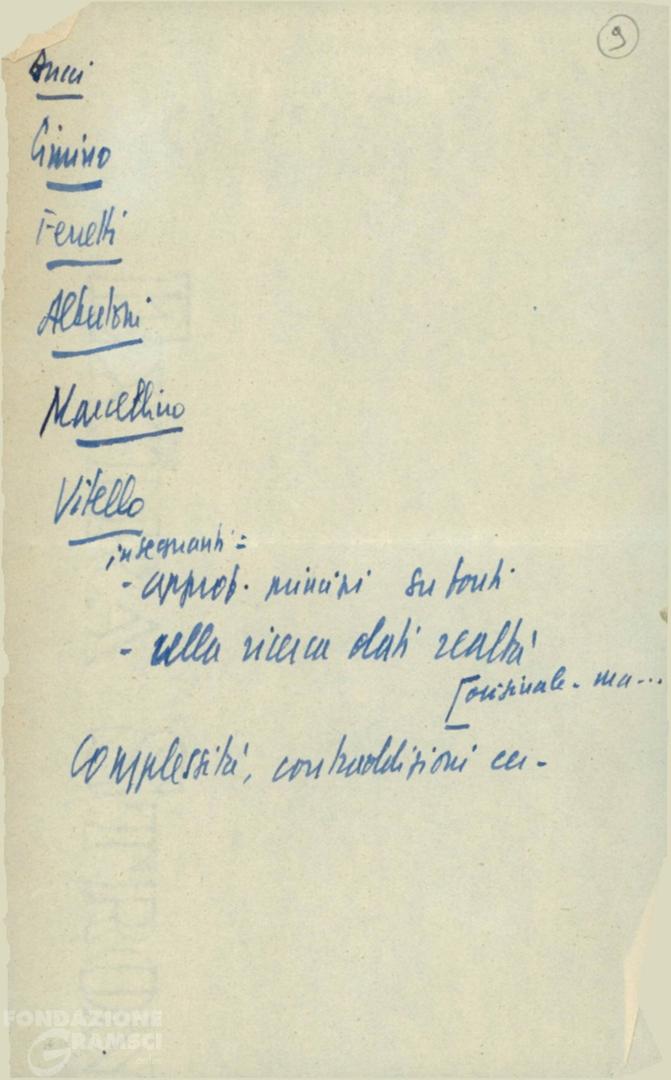 9
Cimino
Ferretti
Albertoni
Marcellino
Vitello
insegnanti =
- approf. principi su fonti
- nella ricerca dati realtà
[originale - ma...
Complessità, contraddizioni
FONDAZIONE
GRAMSCI